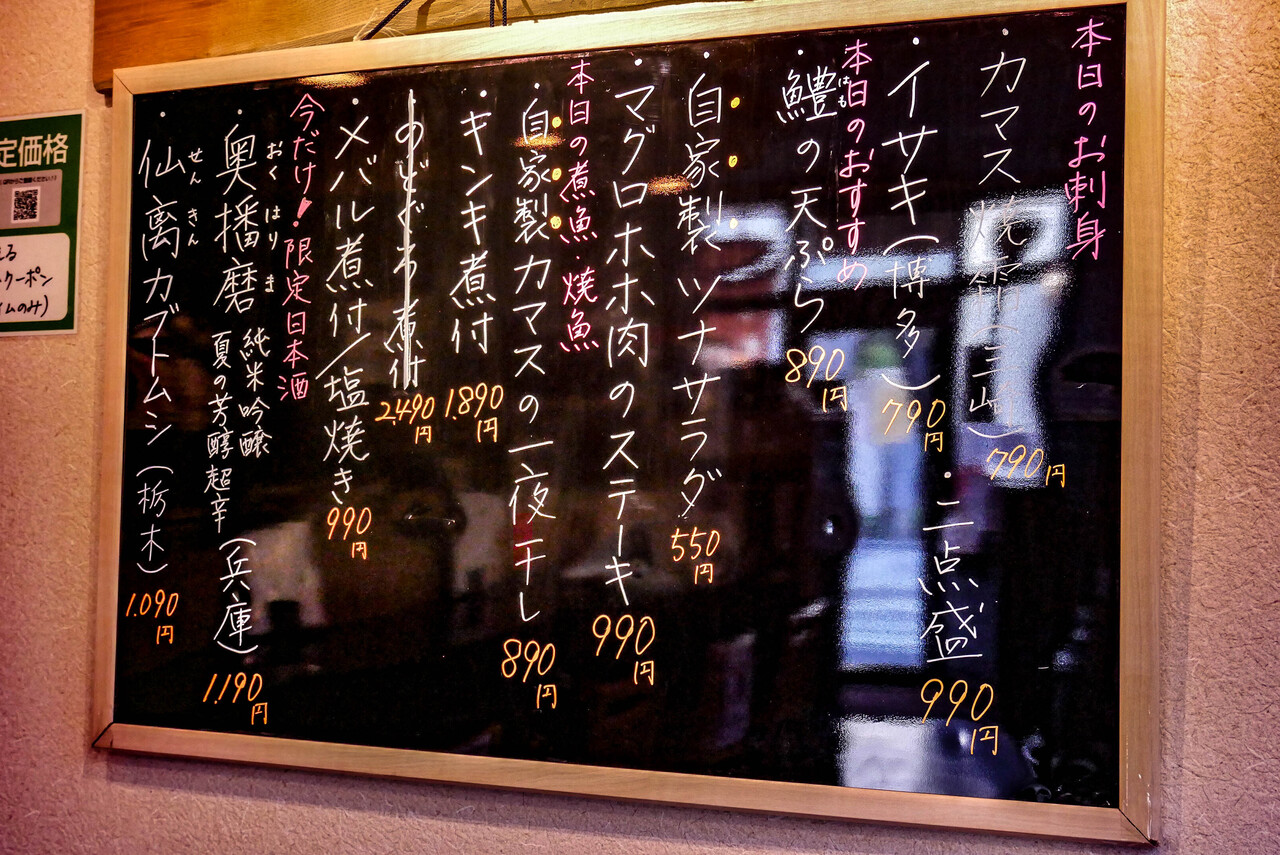 本日のお刺身
・カマス焼霜(三崎)790円
・イサキ(博多)790円
・二点盛 990円
本日のおすすめ
・鱧の天ぷら 890円
はも
・自家製ツナサラダ 550円
・マグロホホ肉のステーキ 990円
本日の煮魚・焼魚
・自家製カマスの一夜干し 890円
・キンキ煮付 1.890円
・のどぐろ煮付 2.490円
・メバル煮付/塩焼き 990円
今だけ!限定日本酒
・奥播磨 純米吟醸
おくはりま
夏の芳醇超辛(兵庫)1.190円
・仙禽カブトムシ(栃木)1.090円
せんきん
定価格
クーポン
イムのみ)